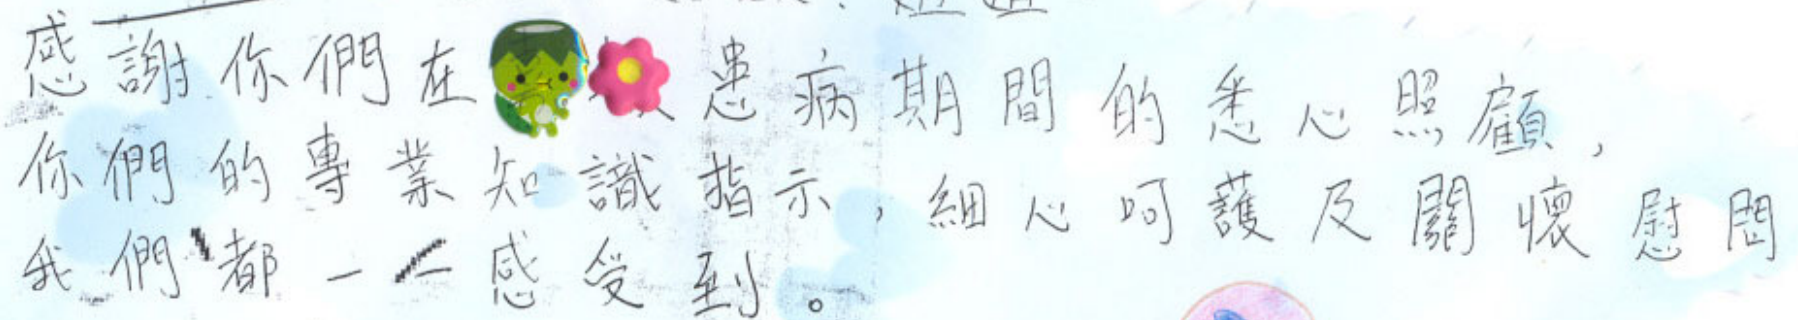 感謝你們在患病期間的悉心照顧,
你們的專業知識指示,細心呵護及關懷慰問
我們都一一感受到。